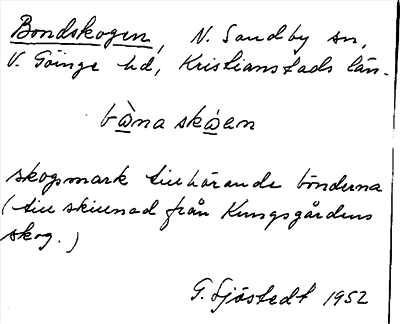 Bondskogen, N. Sandby sn,
V. Göinge hd, Kristianstads län.
bὼna skώen
skogsmark tillhörande bönderna
(till skillnad från Kungsgårdens
skog.)
G. Sjöstedt 1952